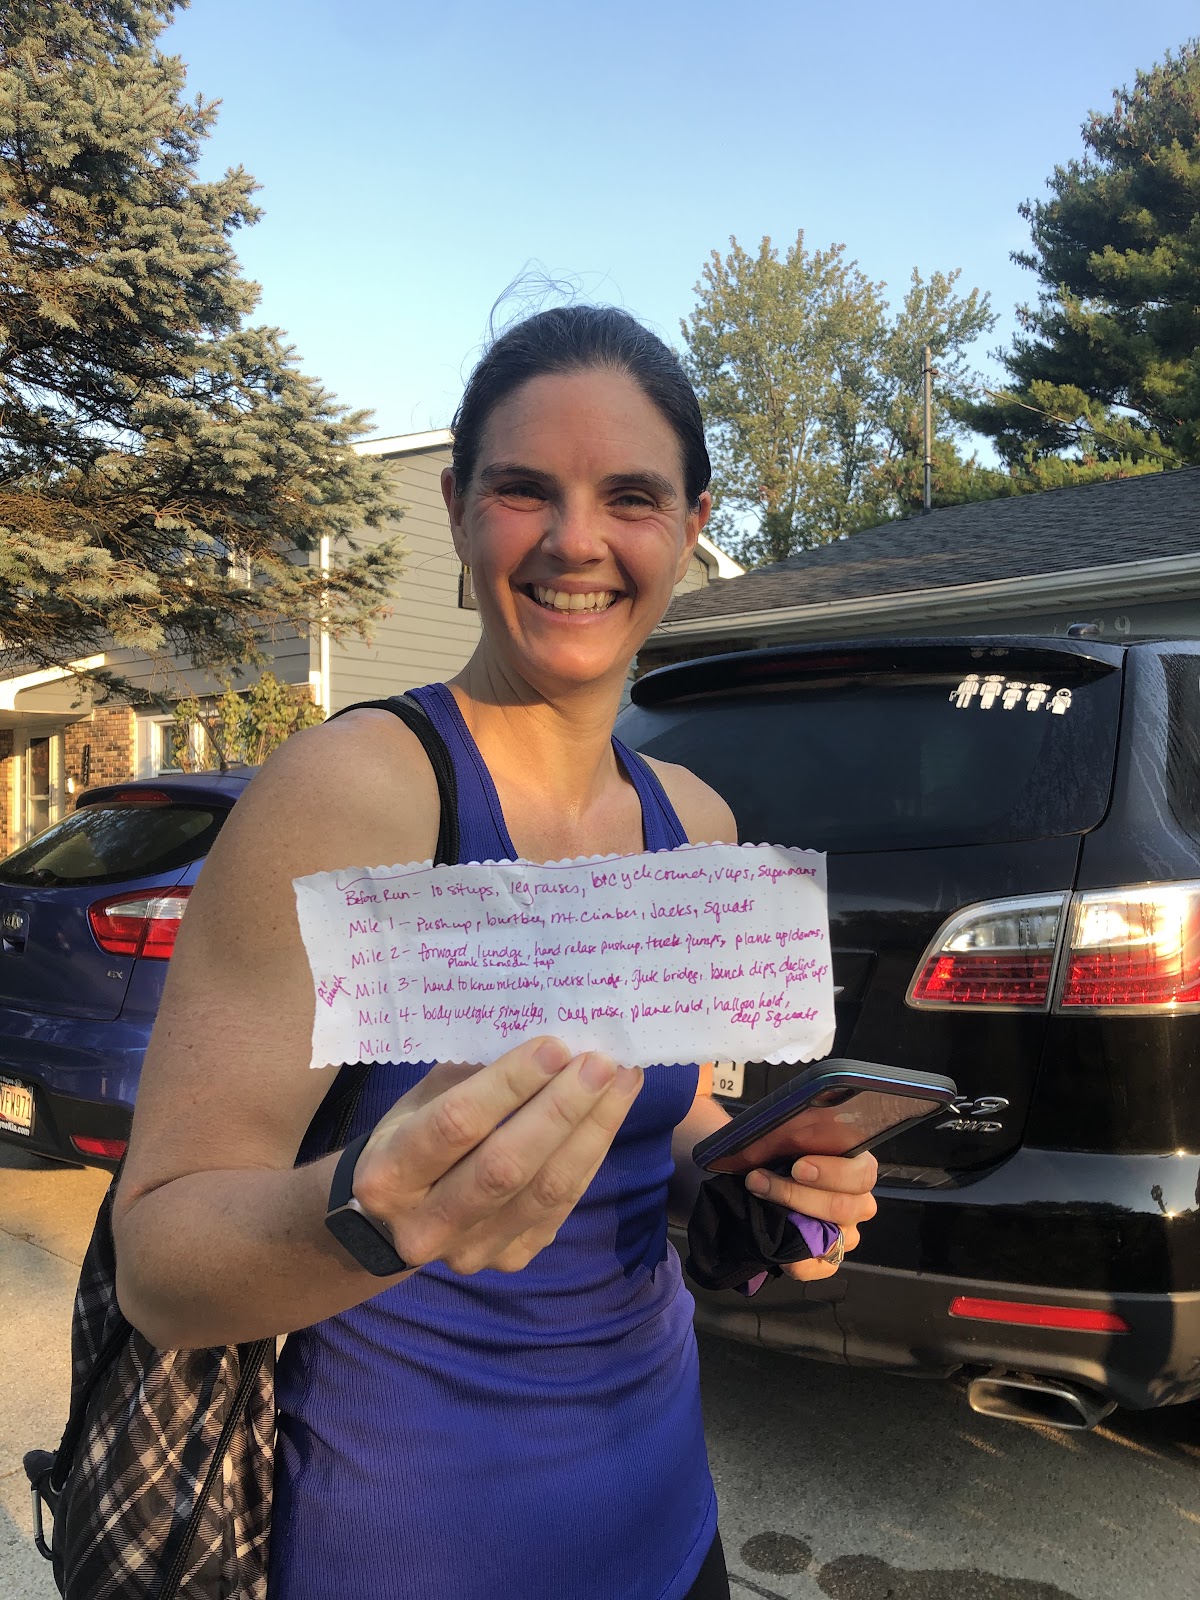 Before Run- 10 situps, leg raises, bicycle crunch, v ups, Supermans
Mile 1- Pushup, burbee, Mt. Climber, Jacks, Squats
Mile 2- forward lundge, hand relase pushup, tuck jumps, plank up/downs,
Plank Shoulder tap
at bench
Mile 3- hand to knee mt climb, reverse lunge, glute bridge, bench dips, decline
push ups
Mile 4- bodyweight single leg, Calf raise, plank hold, hallow hold,
Squat
deep squats
Mile 5-
EX
VFW971
02
X-9
AWD